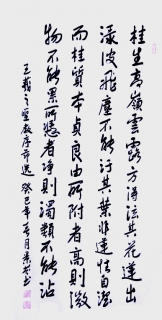 桂生高嶺雲露方得泫其花蓮出
淥波飛塵不能汙其葉非蓮性自潔
而桂質本貞良由所附者高則微
物不能累所憑者淨則濁類不能沾
王羲之聖教序節選 癸巳年 月 書